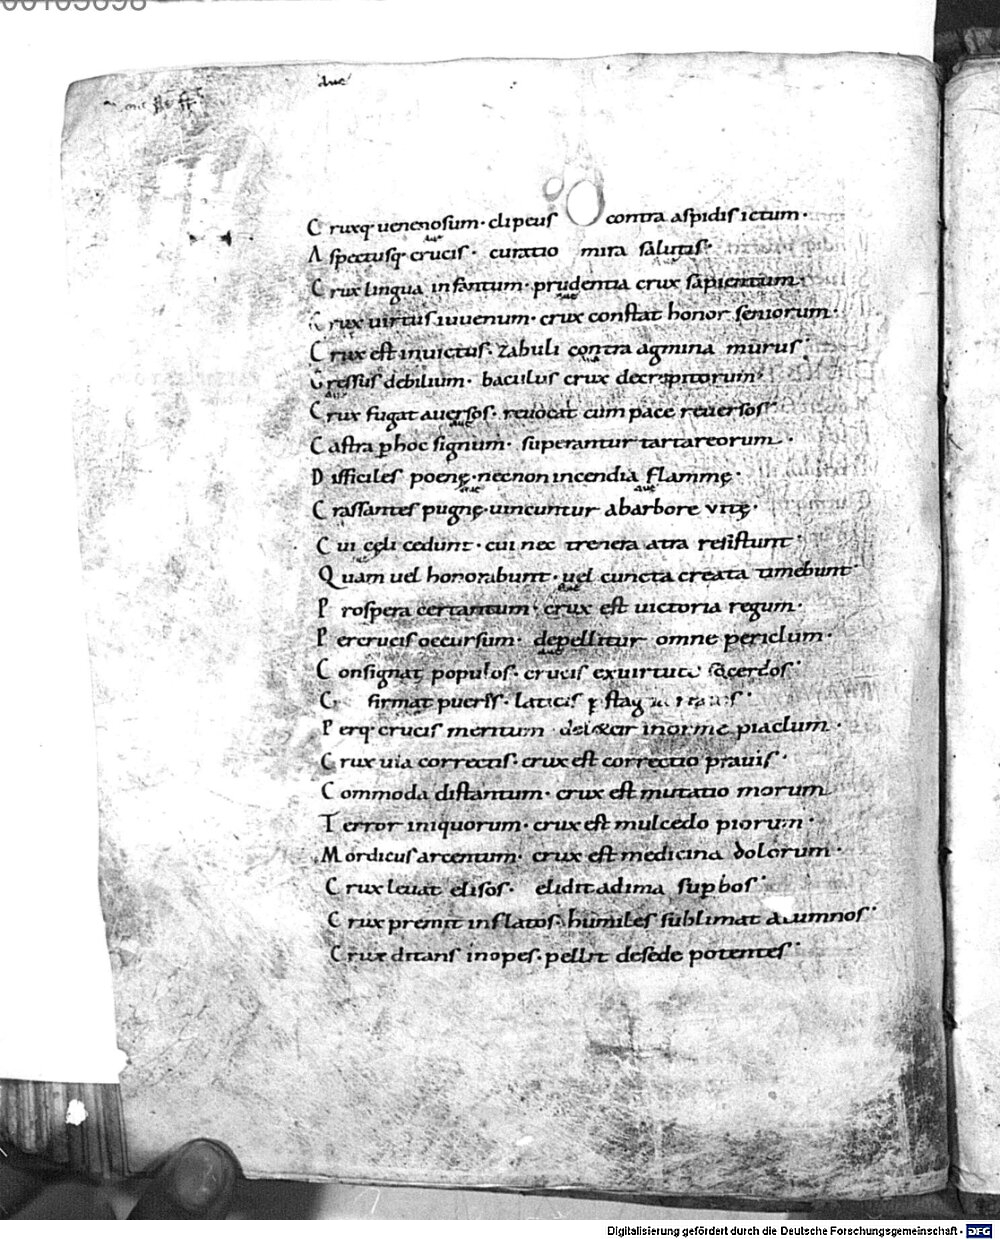 duc
Cruxq uenenosum· clipeus contra aspidis ictum·
Aspectusq· crucis· curatio mira salutis·
Crux lingua infantum· prudentia crux sapientium·
Crux uirtus iuuenum· crux constat honor seniorum·
Crux est inuictus· zabuli contra agmina murus·
Gressus debilium· baculus crux decrepitorum·
Crux fugat auersos· reuocat cum pace reuersos·
Castra p hoc signum· superantur tartareorum·
Difficiles poenę· necnon incendia flammę·
Crassantes pugnę· uincuntur abarbore vitę·
Cui cęli cedunt· cui nec atra resistunt·
Quam uel honorabunt· uel cuncta creata timebunt·
Prospera certantum· crux est uictoria regum·
Percrucis occursum· depellitur omne periclum·
Consignat populos· crucis exuirtute sacerdos·
firmat puerss· laticis
Perq· crucis meritum inorme piaclum·
Crux uia correctis· crux est correctio prauis·
Commoda distantum· crux est mutatio morum
Terror iniquorum· crux est mulcedo piorum·
Mordicus arcentum· crux est medicina dolorum·
Crux leuat elisos· elidit adima supbos·
Crux premit inflatos· humiles sublimat alumnos·
Crux ditans inopes· pellit desede potentes·
Digitalisierung gefördert durch die Deutsche Forschungsgemeinschaft - DFG